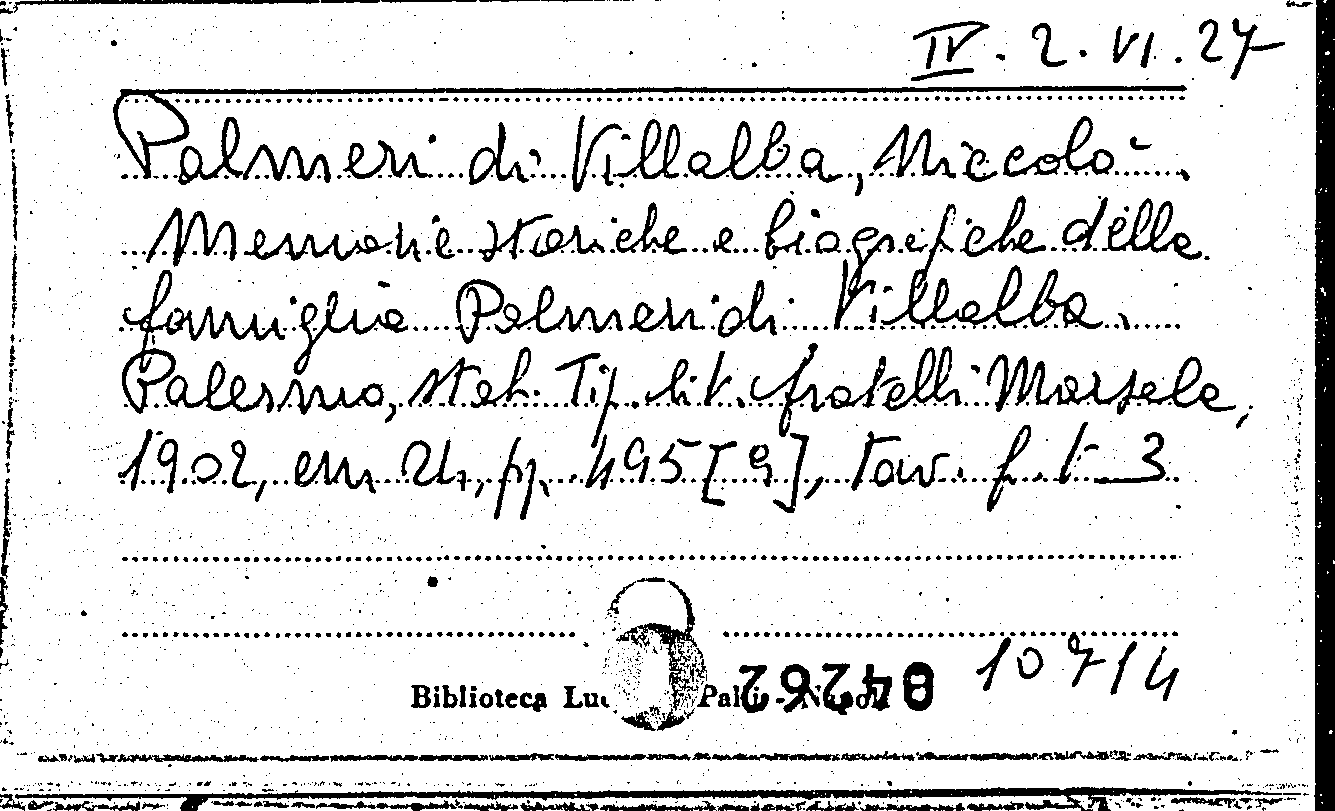 IV. 2. VI. 27
Palmeri di Villalba, Niccolò.
Memorie storiche e biografiche della
famiglia Palmeri di Villalba.
Palermo, stab. Tip. lit. fratelli Marsala,
1902, cm 24, pp. 495 [9], tav. f. t. 3
10714
Biblioteca